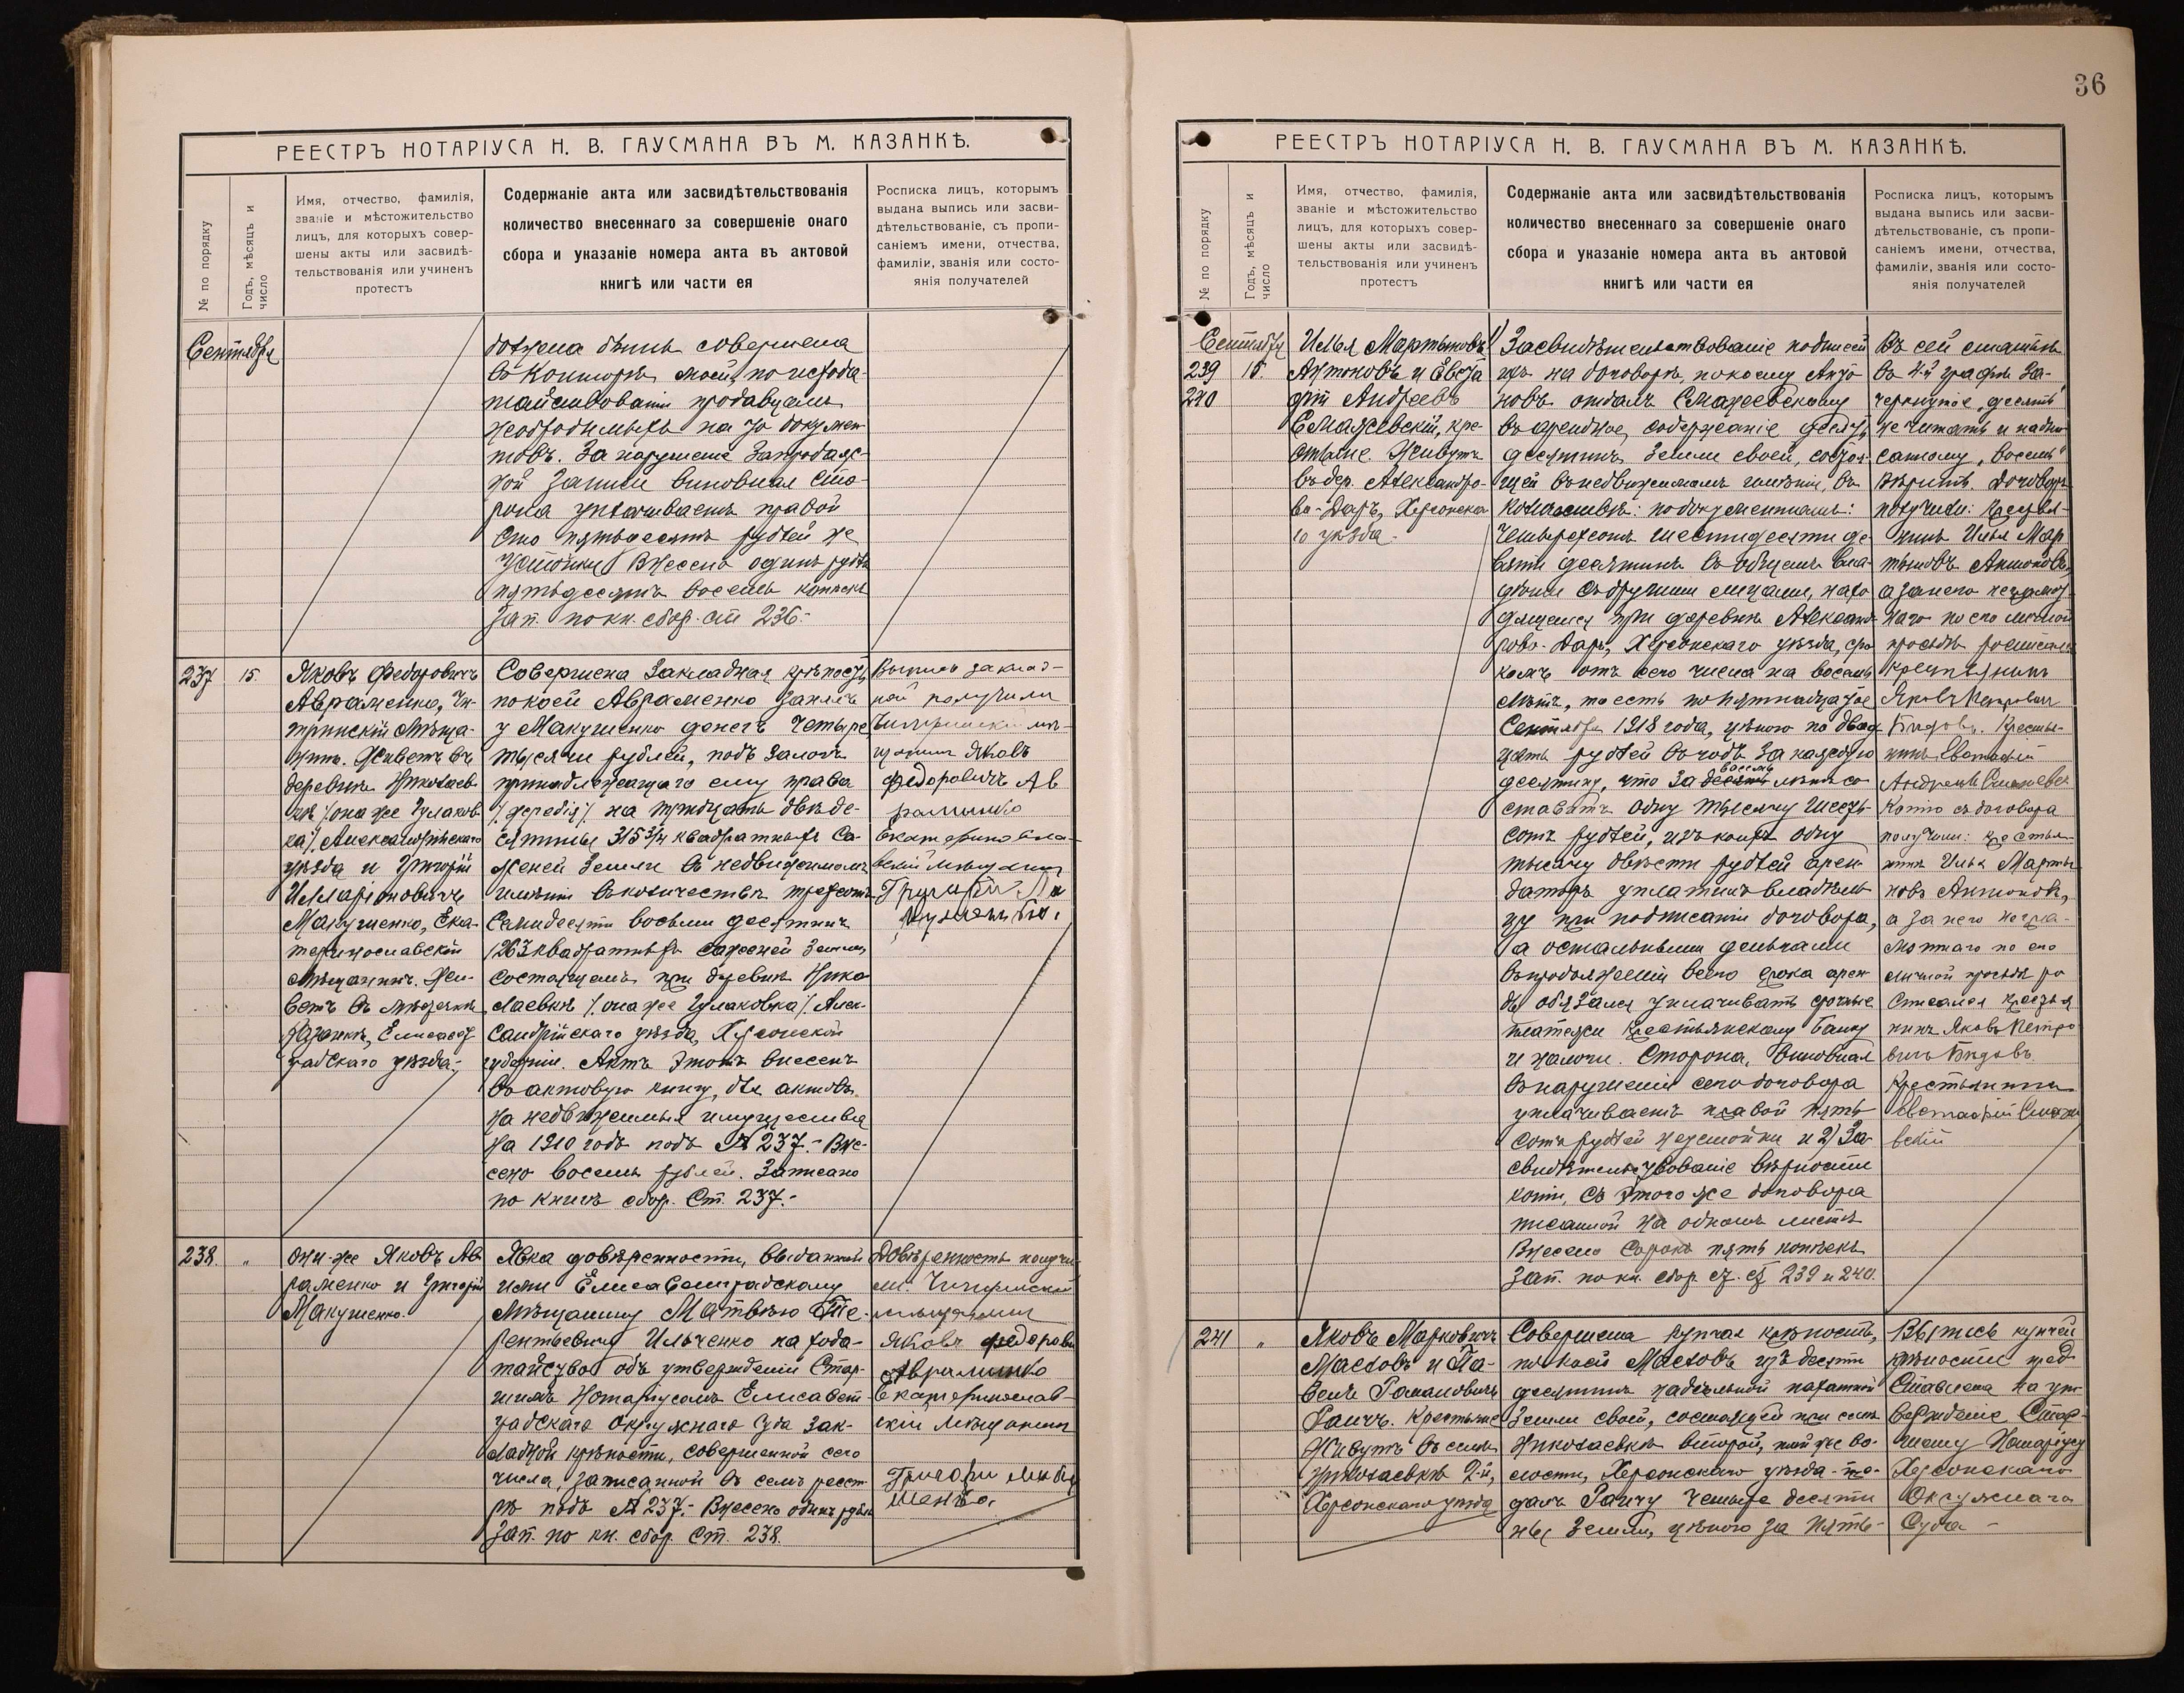 РЕЕСТРЪ НОТАРІУСА Н. В. ГАУСМАНА ВЪ М. КАЗАНКѢ.
№ по порядку
Годъ, мѣсяцъ и число
Имя, отчество, фамилія,
званіе и мѣстожительство
лицъ, для которыхъ совер-
шены акты или засвидѣ-
тельствованія или учиненъ
протестъ
Содержаніе акта или засвидѣтельствованія
количество внесеннаго за совершеніе онаго
сбора и указаніе номера акта въ актовой
книгѣ или части ея
Росписка лицъ, которымъ
выдана выпись или засви-
дѣтельствованіе, съ пропи-
саніемъ имени, отчества,
фамиліи, званія или состо-
янія получателей
Сентября
должна быть совершена
въ Конторѣ моей, по исхода-
тайствованіи продавцемъ
необходимыхъ на то докумен-
товъ. За нарушеніе запродаж-
ной записи виновная сто-
рона уплачиваетъ правой
сто пятьдесятъ рублей не
устойки. Внесено одинъ рубль
пятьдесятъ восемь копѣекъ
Зап. по кн. сбор. ст. 236.
237
15.
Яковъ Федоровичъ
Авраменко, Чи-
гиринскій мѣща-
нинъ. Живетъ въ
деревнѣ Николаев-
кѣ /она же Гулаков-
ка/, Александрійскаго
уѣзда и Григорій
Илларіоновичъ
Макушенко, Ека-
теринославскій
мѣщанинъ. Жи-
ветъ въ мѣстечкѣ
Казанкѣ, Елисавет-
градскаго уѣзда.
Совершена закладная крѣпость,
по коей Авраменко занялъ
у Макушенко денегъ четыре
тысячи рублей, подъ залогъ
принадлежащаго ему права
/жеребія/ на тридцать двѣ де-
сятины 315 3/4 квадратныхъ са-
женей земли въ недвижимомъ
имѣніи въ количествѣ трехсотъ
семидесяти восьми десятинъ
1263 квадратныхъ саженей земли,
состоящемъ при деревнѣ Нико-
лаевкѣ /она же Гулаковка/ Алек-
сандрійскаго уѣзда, Херсонской
губерніи. Актъ этотъ внесенъ
въ актовую книгу, для актовъ
на недвижимыя имущества
на 1910 годъ подъ № 237. Вне-
сено восемь рублей. Записано
по книгѣ сбор. Ст. 237.
Выпись заклад-
ной получили
Чигиринскій мѣ-
щанинъ Яковъ
Федоровичъ Ав
раменко
Екатериносла-
вскій мѣщанин
Григорій Ма
кушенько.
238.
"
Они-же Яковъ Ав
раменко и Григорій
Макушенко.
Явка довѣренности, выданной
ими Елисаветградскому
мѣщанину Матвѣю Те-
рентьевичу Ильченко на хода-
тайство объ утвержденіи Стар-
шимъ Нотаріусомъ Елисавет-
градскаго Окружнаго Суда зак-
ладной крѣпости, совершенной сего
числа, записанной въ семъ реест
рѣ подъ № 237. Внесено одинъ рубль
Зап. по кн. сбор. Ст. 238.
Довѣренность получи-
ли. Чигиринскій
мѣщанинъ
Яковъ Федорови
Авраменко
Екатеринослав-
скій мѣщанин
Григорій Маку
шенько.
36
РЕЕСТРЪ НОТАРІУСА Н. В. ГАУСМАНА ВЪ М. КАЗАНКѢ.
№ по порядку
Годъ, мѣсяцъ и число
Имя, отчество, фамилія,
званіе и мѣстожительство
лицъ, для которыхъ совер-
шены акты или засвидѣ-
тельствованія или учиненъ
протестъ
Содержаніе акта или засвидѣтельствованія
количество внесеннаго за совершеніе онаго
сбора и указаніе номера акта въ актовой
книгѣ или части ея
Росписка лицъ, которымъ
выдана выпись или засви-
дѣтельствованіе, съ пропи-
саніемъ имени, отчества,
фамиліи, званія или состо-
янія получателей
Сентября
239
240
15.
Илья Мартыновъ
Антоновъ и Евста
фій Андреевъ
Смажевскій, кре-
стьяне. Живутъ
въ дер. Александро-
во-Даръ, Херсонска
го уѣзда.
1) Засвидѣтельствованіе подписей
ихъ на договорѣ, по коему Анто
новъ отдалъ Смажевскому
въ арендное содержаніе десять
десятинъ земли своей, состоя-
щей въ недвижимомъ имѣніи, въ
количествѣ: по документамъ:
четырехсотъ шестидесяти де-
вяти десятинъ въ общемъ вла-
дѣніи съ другими лицами, нахо
дящемся при деревнѣ Александ-
рово-Даръ, Херсонскаго уѣзда, сро
комъ отъ сего числа на восемь
лѣтъ, то есть по пятнадцатое
Сентября 1918 года, цѣною по двад
цать рублей въ годъ за каждую
восемь
десятину, что за десять лѣтъ со
ставитъ одну тысячу шесть-
сотъ рублей, изъ коихъ одну
тысячу двѣсти рублей арен
даторъ уплатилъ владѣль-
цу при подписаніи договора,
а остальными деньгами
въ продолженіи всего срока арен
ды обязался уплачивать срочные
платежи Крестьянскому Банку
и налоги. Сторона, виновная
въ нарушеніи сего договора
уплачиваетъ правой пять
сотъ рублей неустойки и 2) За-
свидѣтельствованіе вѣрности
копіи, съ этого же договора
писанной на одномъ листѣ
Внесено сорокъ пять копѣекъ
Зап. по кн. сбор. ст. ст. 239 и 240.
Въ сей статьѣ
въ 4-й графѣ за-
черкнутое „десять"
не читать и надпи-
санному „восемь"
вѣрить. Договоръ
получили: Крестья-
нинъ Илья Мар
тыновъ Антоновъ,
а за него неграмот-
наго по его личной
просьбѣ росписался
крестьянинъ
Яковъ Петрович
Крестья-
нинъ Евстафій
Андреевъ Смажевск
Копію съ договора
получили: крестья-
нинъ Илья Марты
новъ Антоновъ,
а за него негра-
мотнаго по его
личной просьбѣ ро
списался крестья
нинъ Яковъ Петро
вичъ
Крестьянинъ
Евстафій Смаже
вскій
241
"
Яковъ Марковичъ
Масловъ и Па-
велъ Романовичъ
Ганчъ. Крестьяне
Живутъ въ селѣ
Николаевкѣ 2-й,
Херсонскаго уѣзда
Совершена купчая крѣпость,
по коей Масловъ изъ десяти
десятинъ надѣльной пахатной
земли своей, состоящей при селѣ
Николаевкѣ второй, той же во-
лости, Херсонскаго уѣзда - про-
далъ Ганчу четыре десяти
ны земли, цѣною за пять-
Выпись купчей
крѣпости пред
ставлена на ут-
вержденіе Стар-
шему Нотаріусу
Херсонскаго
Окружнаго
Суда